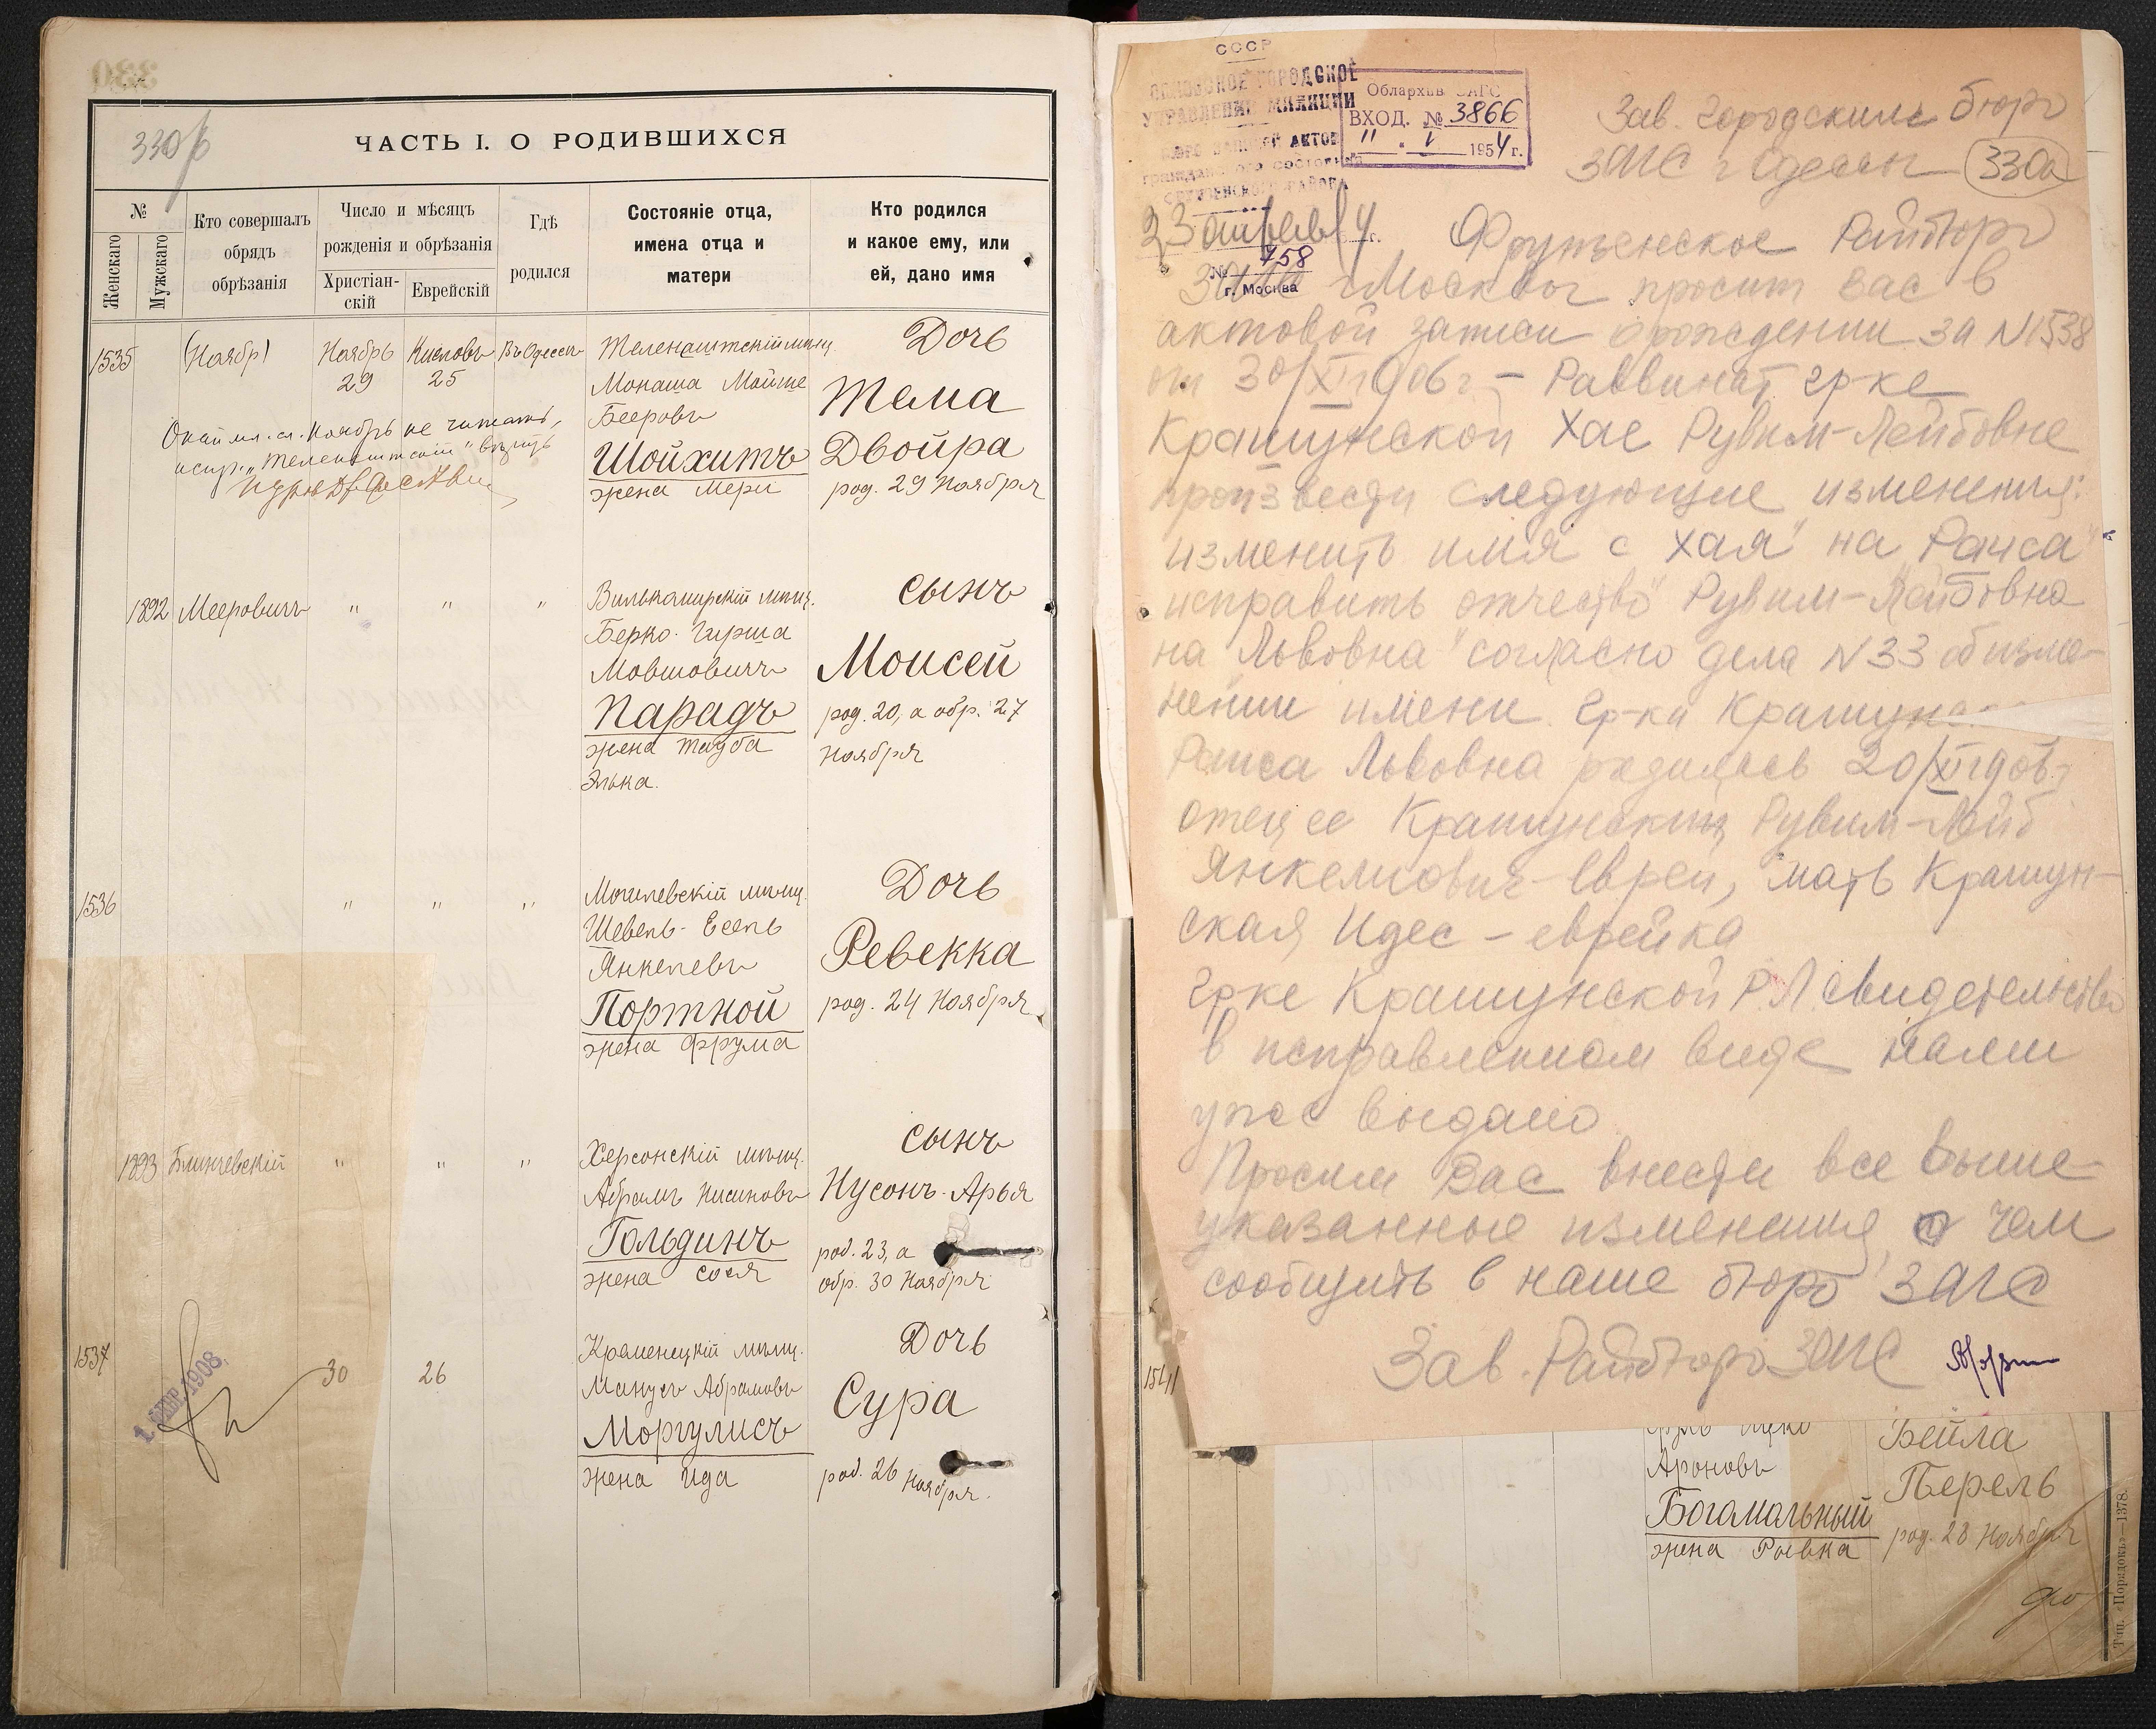 330б
ЧАСТЬ I. О РОДИВШИХСЯ
№
Женскаго
Мужскаго
Кто совершалъ
обрядъ
обрѣзанія
Число и мѣсяцъ
рожденія и обрѣзанія
Христіан-
скій
Еврейскій
Гдѣ
родился
Состояніе отца,
имена отца и
матери
Кто родился
и какое ему, или
ей, дано имя
1535
(Ноябрь)
Ноябрь
29
Кислевъ
25
Въ Одессѣ
Теленештскій мѣщ.
Монаша Мойше
Бееровъ
Шойхитъ
жена Мери
Дочь
Тема
Двойра
род. 29 Ноября
Ноябрь не читать,
испр. „Теленештскій“
1892
Мееровичъ
" " "
Вилькомирскій мѣщ.
Берко-Гирша
Мовшовичъ
Парадъ
жена Тауба
Элька.
Сынъ
Моисей
род. 20, а обр. 27
Ноября
1536
" " "
Могилевскій мѣщ.
Шевель-Есель
Янкелевъ
Портной
жена Фрума
Дочь
Ревекка
род. 24 Ноября
1893
" " "
Херсонскій мѣщ.
Абрамъ Нисиновъ
Гольдинъ
жена Сося
Сынъ
Нусонъ-Арья
род. 23, а
обр. 30 Ноября
1537
1. ФЕВР. 1908.
30
26
Кременецкій мѣщ.
Манусъ Абрамовъ
Моргулисъ
жена Ида
Дочь
Сура
род. 26 Ноября.
СССР
ГОРОДСКОЕ
УПРАВЛЕНИЕ МИЛИЦИИ
БЮРО ЗАПИСЕЙ АКТОВ
гражданского состояния
ФРУНЗЕНСКОГО РАЙОНА
23 апреля 4 г.
№ 758
г. Москва
Облархив ЗАГС
ВХОД. № 3866
" " V 1954 г.
Зав. Городским бюро
ЗАГС г Одессы
330а
Фрунзенское Райбюро
ЗАГС г Москвы просит вас в
актовой записи о рождении за N1538
от 30/XI 1906 г – Раввинат гр-ке
Крашунской Хае Рувим-Лейбовне
произвести следующие изменения:
изменить имя с „Хая“ на „Раиса“
исправить отчество „Рувим-Лейбовна
на „Львовна“ согласно дела N33 об изме-
нении имени гр-ки Крашунс
Раиса Львовна родилась 20/XI 1906г
отец ее Крашунский Рувим-Лейб
Янкелиович – еврей, мать Крашун-
ская Идес – еврейка
Гр-ке Крашунской Р.Л. свидетельство
в исправленном виде нами
уже выдано
Просим Вас внести все выше-
указанные изменения, о чем
сообщить в наше бюро ЗАГС
Зав. Райбюро ЗАГС
1541
Ароновъ
Богомольный
жена Ривка
Бейла
Перель
род. 28 Ноября
Тип. «Порядокъ»—1378.